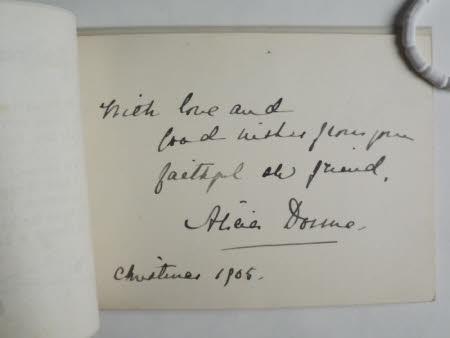 With love and
good wishes from your
faithful old friend.
Alicia Donne.
Christmas 1905.